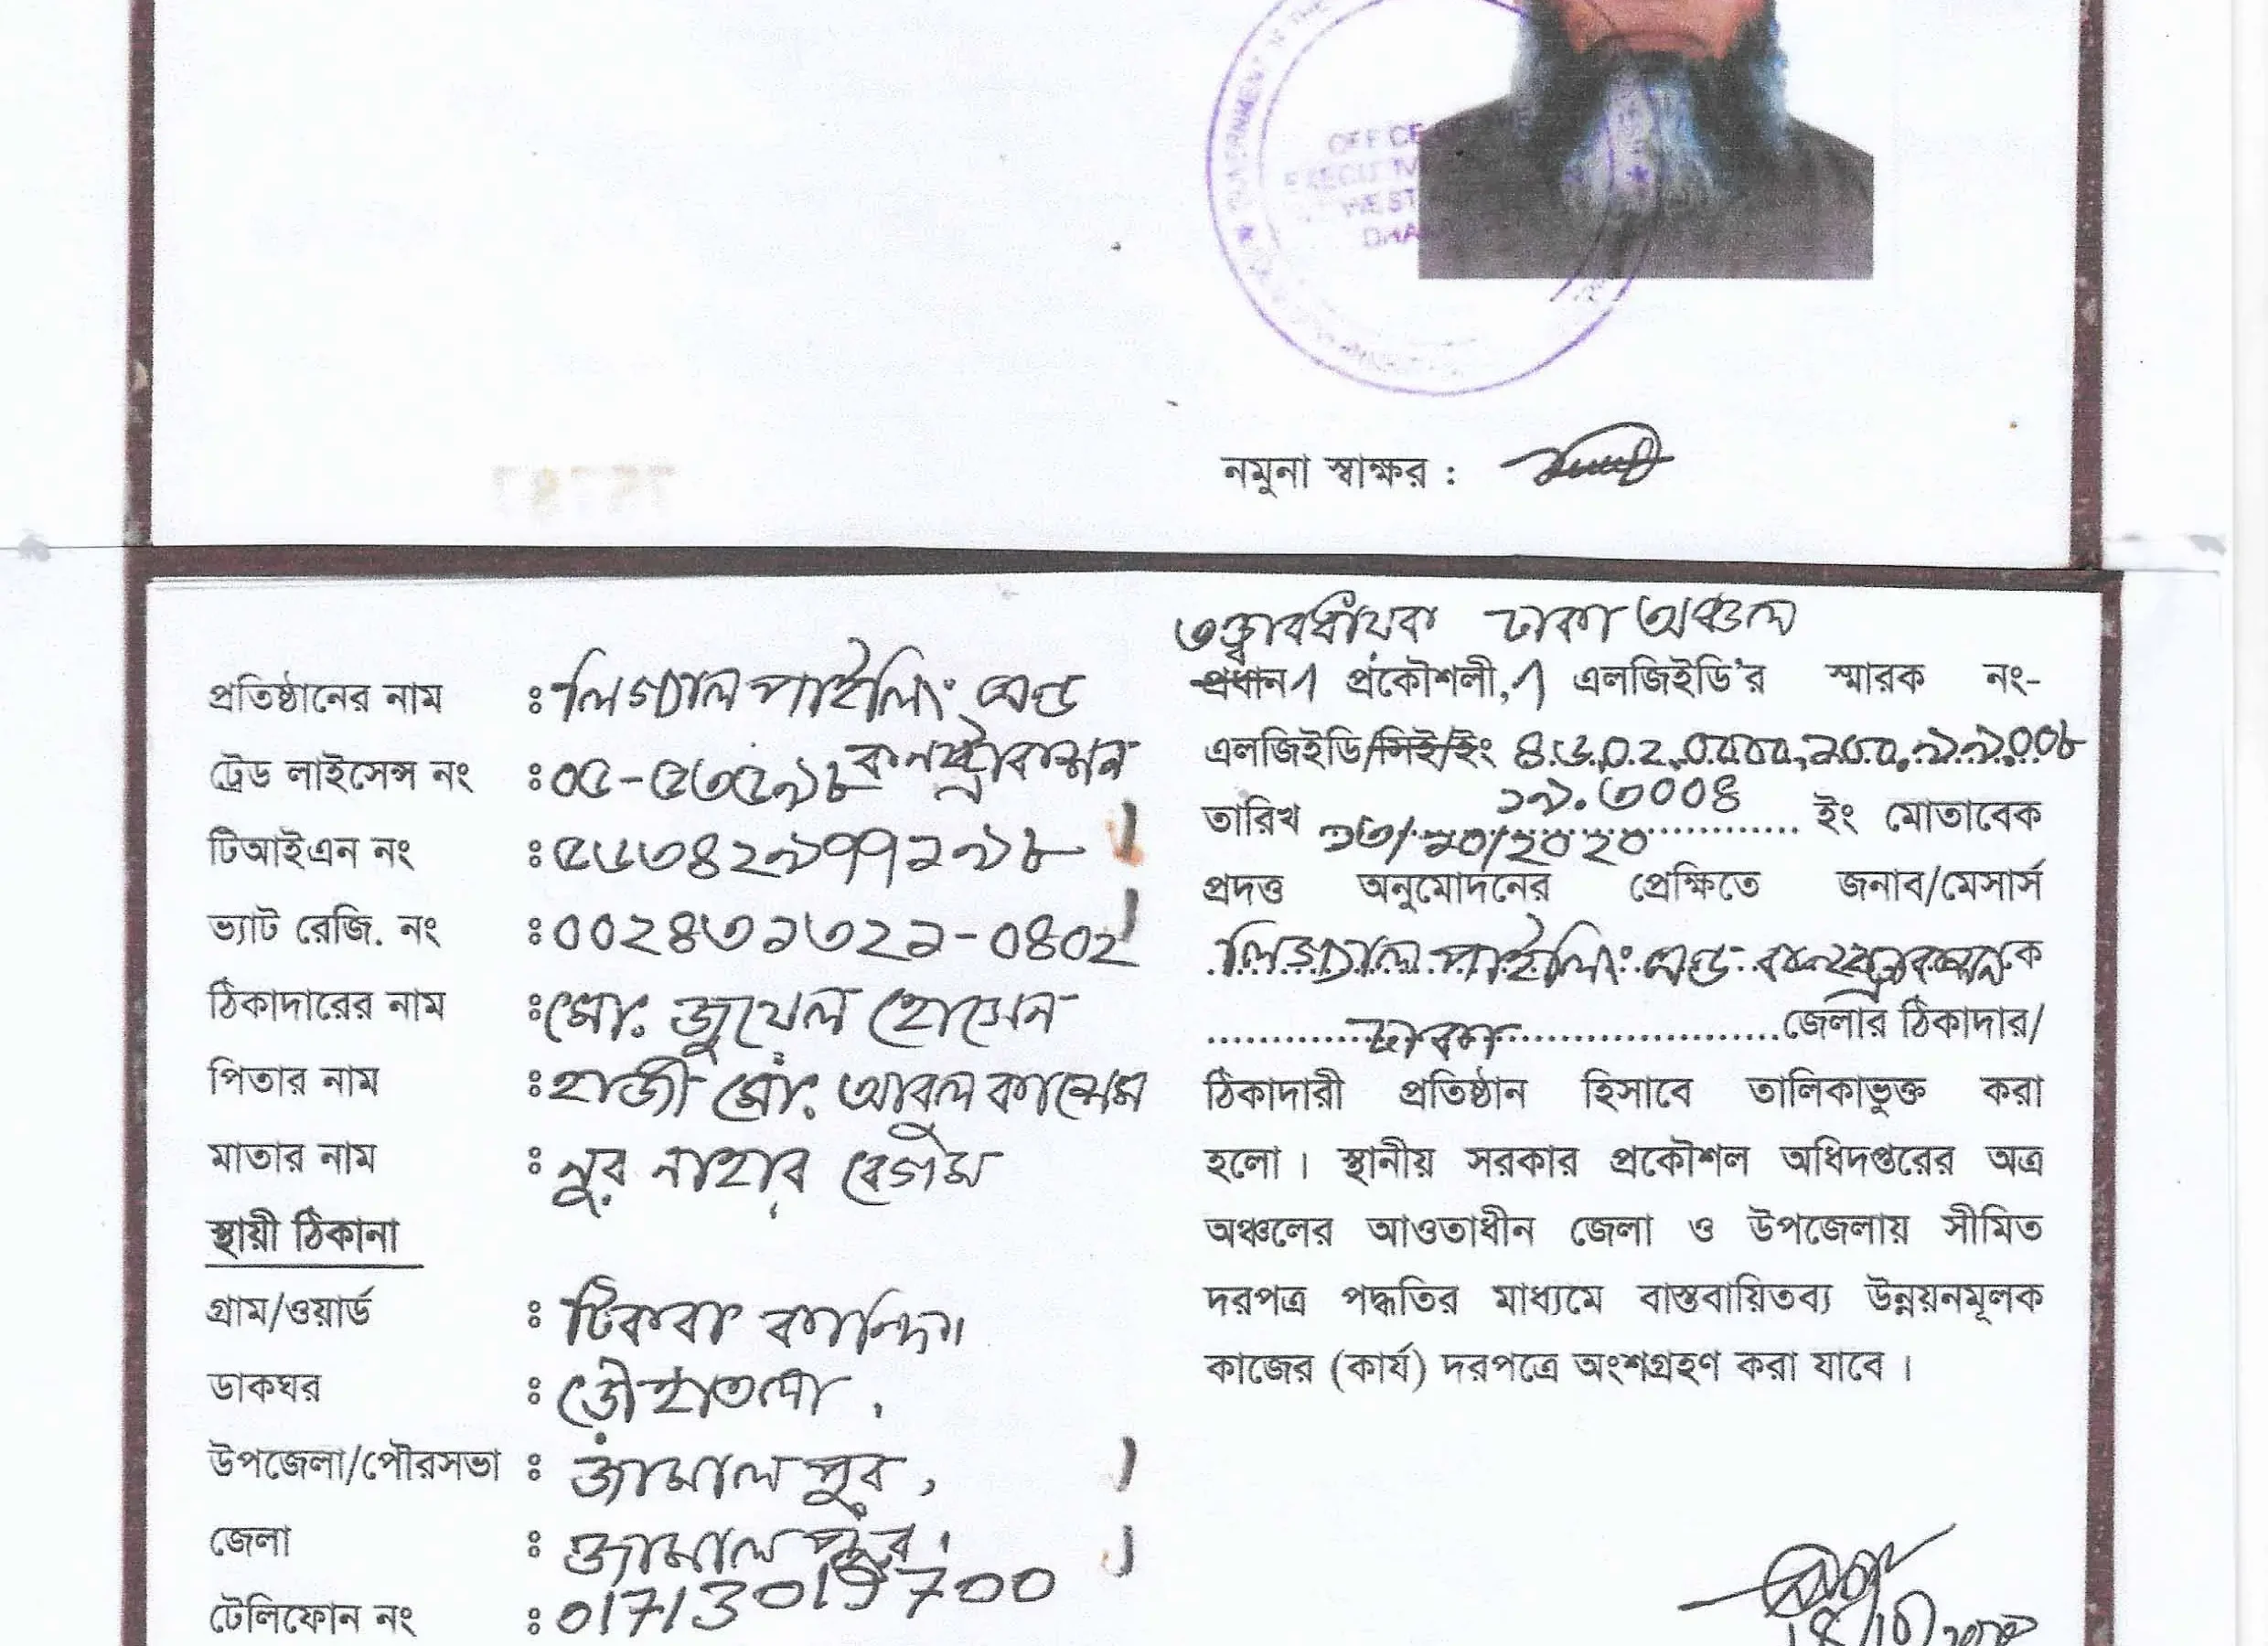 OFFICE
EXECUTIV
WEST
DHA
নমুনা স্বাক্ষর :
প্রতিষ্ঠানের নাম : লিগ্যাল পাইলিং এন্ড
কনস্ট্রাকশন
ট্রেড লাইসেন্স নং : ০৫-৫৩৫৯৮
টিআইএন নং : ৫৬৩৪২৯৭৭২৯৮
ভ্যাট রেজি. নং : ০০২৪৩১৩২১-০৪০২
ঠিকাদারের নাম : মো. জুয়েল হোসেন
পিতার নাম : হাজী মো. আবুল কাশেম
মাতার নাম : নুর নাহার বেগম
স্থায়ী ঠিকানা
গ্রাম/ওয়ার্ড :
ডাকঘর :
উপজেলা/পৌরসভা : জামালপুর,
জেলা : জামালপুর।
টেলিফোন নং :
তত্ত্বাবধায়ক ঢাকা অঞ্চল
প্রধান প্রকৌশলী, এলজিইডি'র স্মারক নং-
এলজিইডি/সিই/ইং
তারিখ ১৩/১০/২০২০ ইং মোতাবেক
প্রদত্ত অনুমোদনের প্রেক্ষিতে জনাব/মেসার্স
লিগ্যাল পাইলিং এন্ড কনস্ট্রাকশন কে
ঢাকা জেলার ঠিকাদার/
ঠিকাদারী প্রতিষ্ঠান হিসাবে তালিকাভুক্ত করা
হলো। স্থানীয় সরকার প্রকৌশল অধিদপ্তরের অত্র
অঞ্চলের আওতাধীন জেলা ও উপজেলায় সীমিত
দরপত্র পদ্ধতির মাধ্যমে বাস্তবায়িতব্য উন্নয়নমূলক
কাজের (কার্য) দরপত্রে অংশগ্রহণ করা যাবে।